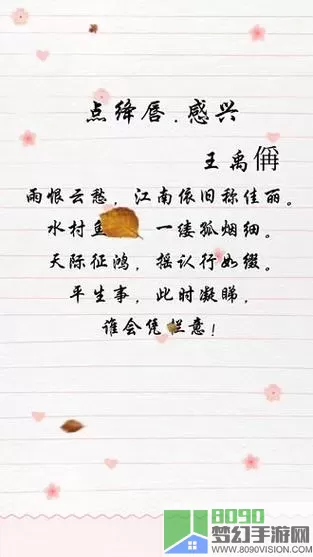 点绛唇.感兴
王禹偁
雨恨云愁，江南依旧称佳丽。
水村鱼 一缕孤烟细。
天际征鸿，摇认行如缀。
平生事，此时凝睇，
谁会凭栏意！
8090
梦幻手游网
WWW.8090VISION.COM